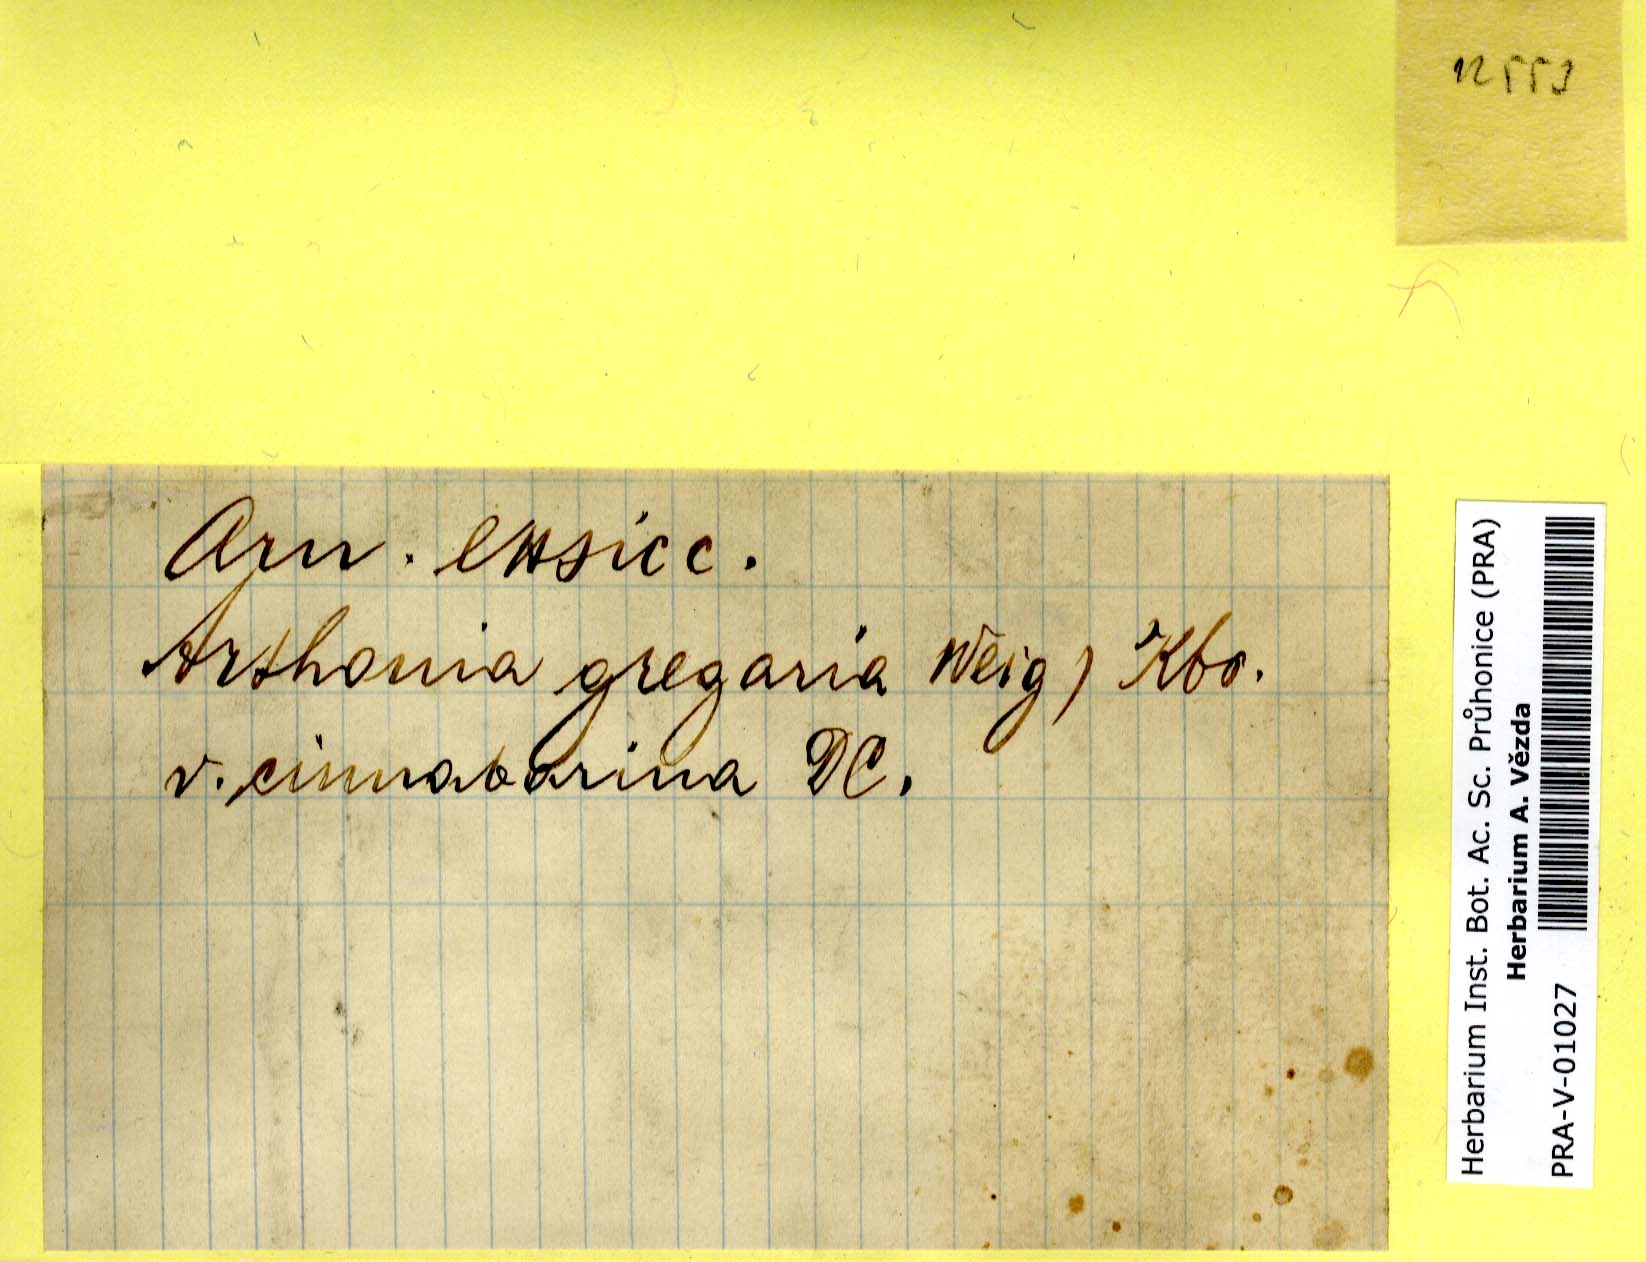 12553
Arn. exsicc.
Arthonia gregaria Weig) Kbr.
v. cinnabarina DC.
Herbarium Inst. Bot. Ac. Sc. Průhonice (PRA)
Herbarium A. Vězda
PRA-V-01027